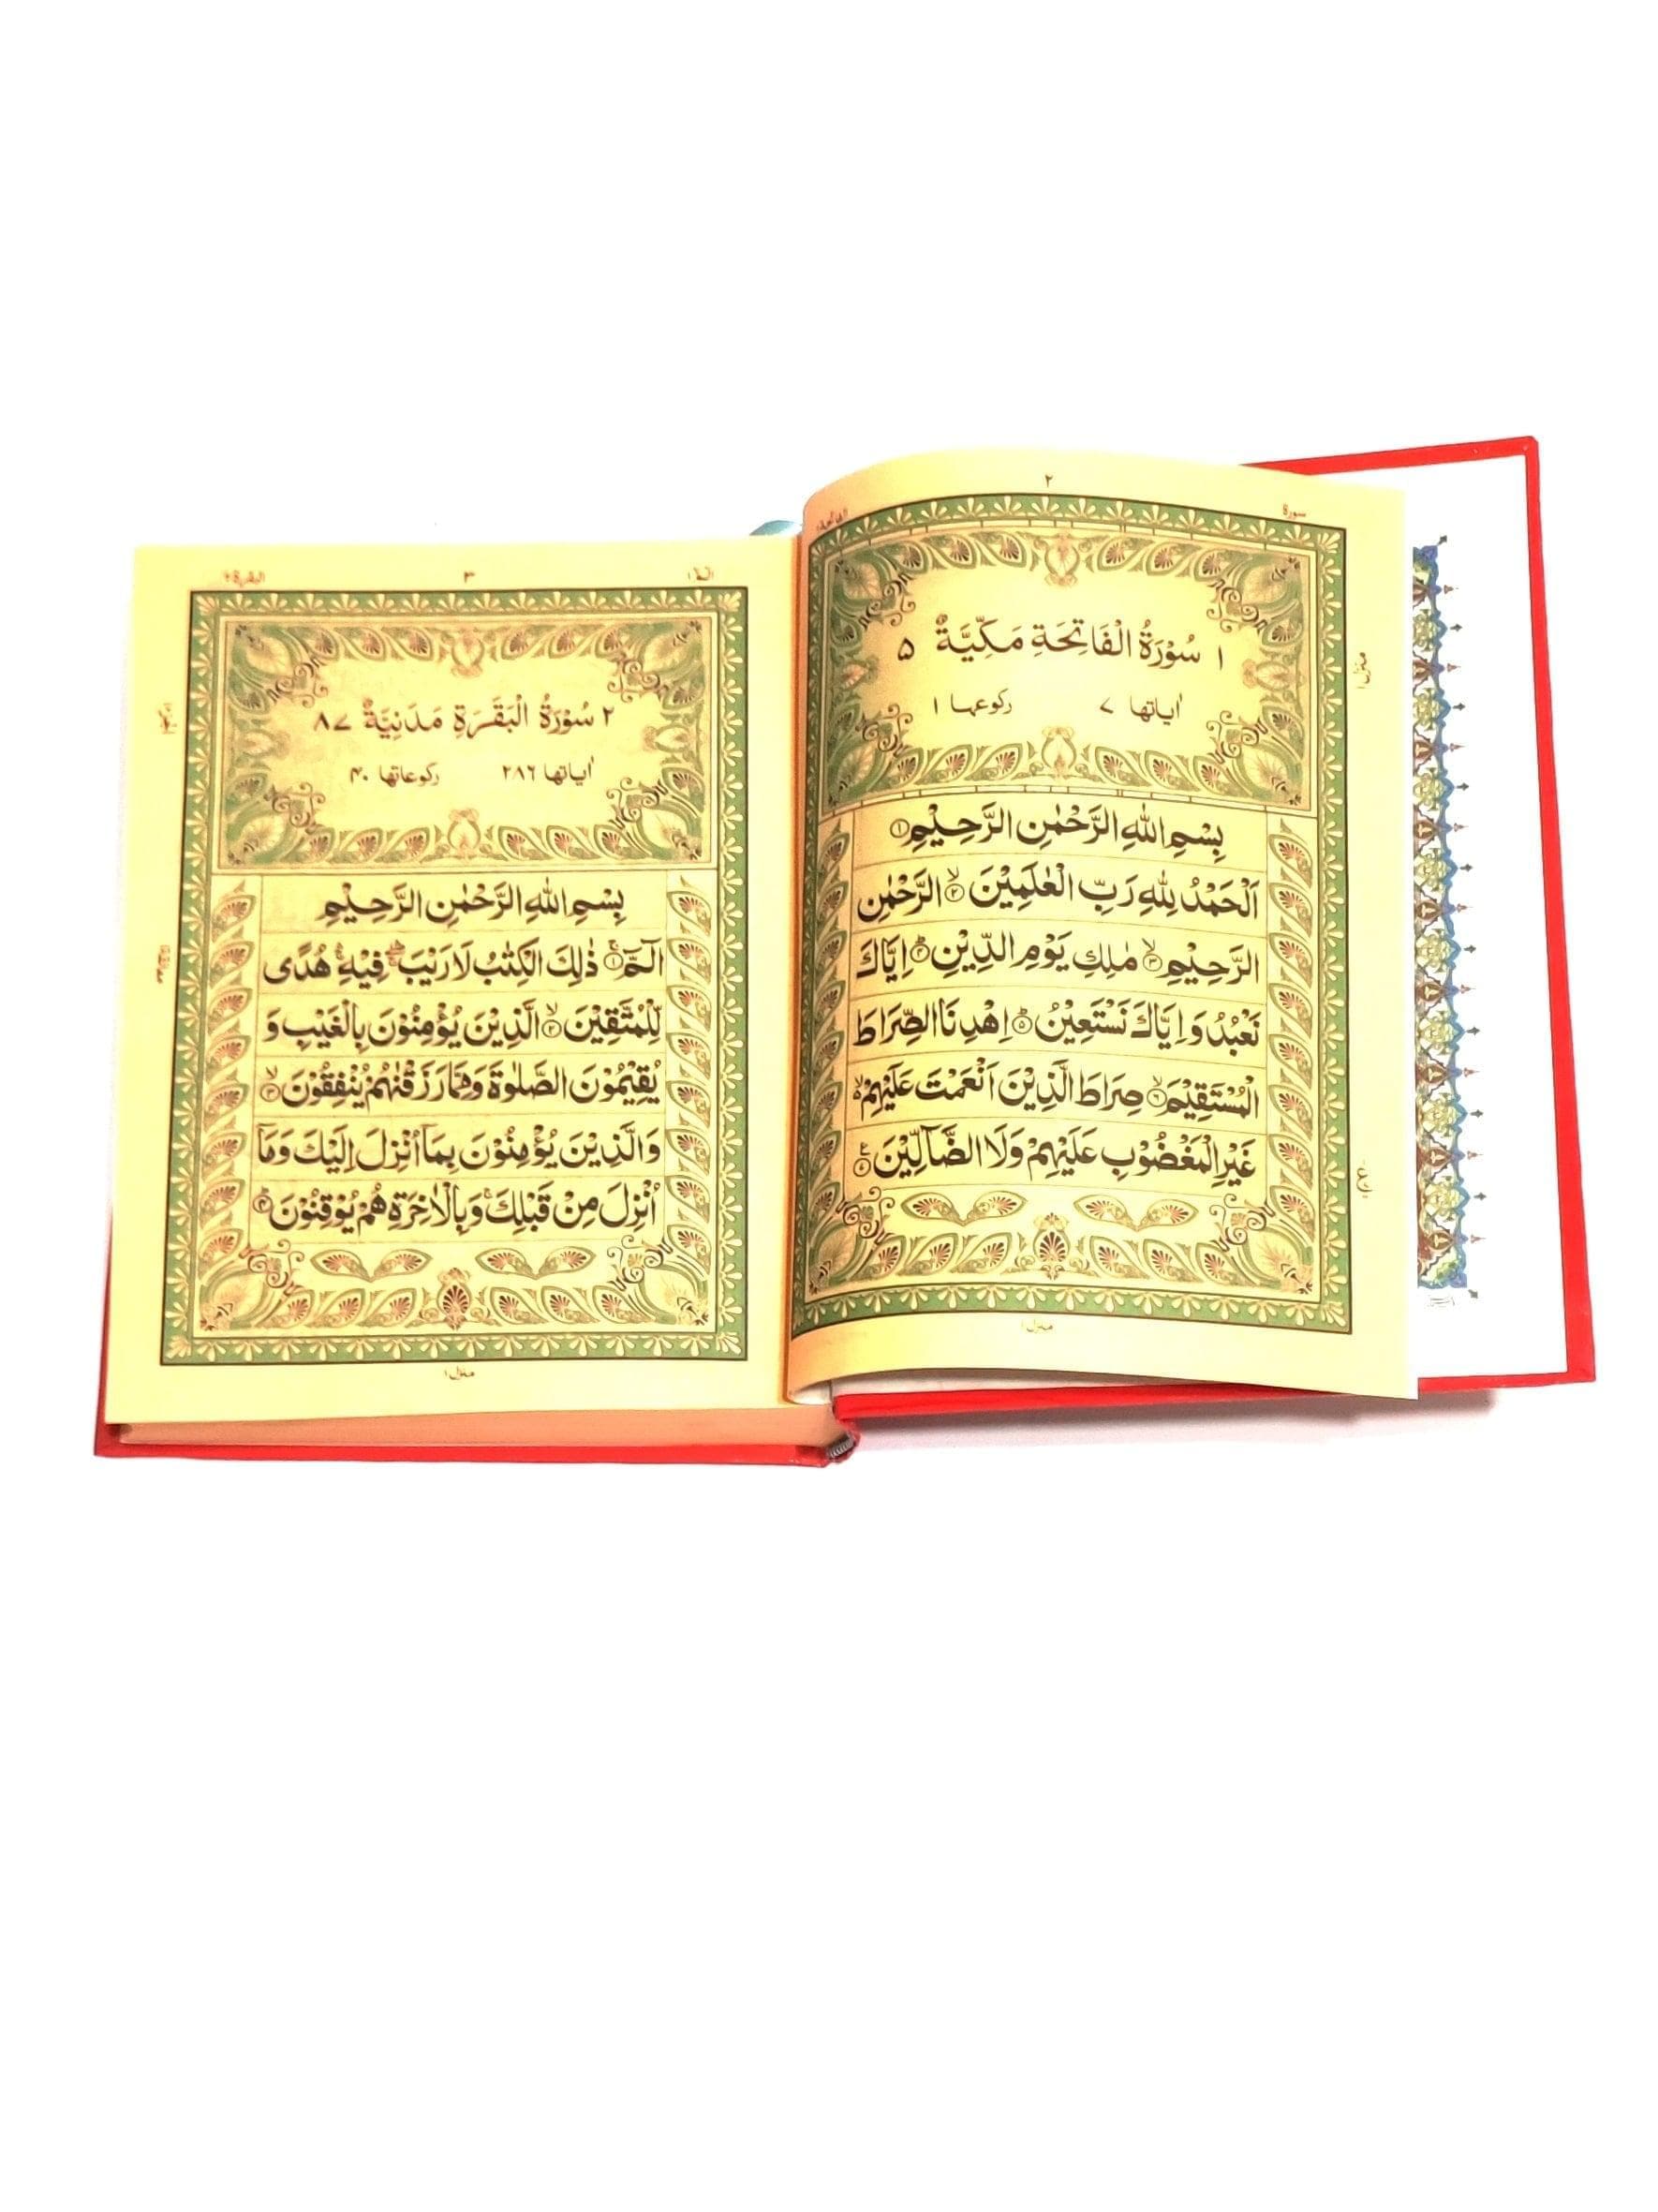 سورة
٢
الفاتحة
١ سُوْرَةُ الْفَاتِحَةِ مَكِّيَّةٌ ٥
اٰیاتها ٧ رکوعها ١
بِسْمِ اللّٰهِ الرَّحْمٰنِ الرَّحِيْمِ ①
اَلْحَمْدُ لِلّٰهِ رَبِّ الْعٰلَمِيْنَ ۙ② الرَّحْمٰنِ
الرَّحِيْمِ ۙ③ مٰلِكِ يَوْمِ الدِّيْنِ ؕ④ اِيَّاكَ
نَعْبُدُ وَاِيَّاكَ نَسْتَعِيْنُ ؕ⑤ اِهْدِنَا الصِّرَاطَ
الْمُسْتَقِيْمَ ۙ⑥ صِرَاطَ الَّذِيْنَ اَنْعَمْتَ عَلَيْهِمْ ۙ
غَيْرِ الْمَغْضُوْبِ عَلَيْهِمْ وَلَا الضَّآلِّيْنَ
منزل ١
منزل ١
الٓمّٓ ١
٣
البقرة ٢
٢ سُوْرَةُ الْبَقَرَةِ مَدَنِيَّةٌ ٨٧
اٰیاتها ٢٨٦ رکوعاتها ٤٠
بِسْمِ اللّٰهِ الرَّحْمٰنِ الرَّحِيْمِ
الٓمّٓ ۚ① ذٰلِكَ الْكِتٰبُ لَا رَيْبَ ۛۖ فِيْهِ ۛۚ هُدًى
لِّلْمُتَّقِيْنَ ۙ② الَّذِيْنَ يُؤْمِنُوْنَ بِالْغَيْبِ وَ
يُقِيْمُوْنَ الصَّلٰوةَ وَمِمَّا رَزَقْنٰهُمْ يُنْفِقُوْنَ ۙ③
وَالَّذِيْنَ يُؤْمِنُوْنَ بِمَاۤ اُنْزِلَ اِلَيْكَ وَمَاۤ
اُنْزِلَ مِنْ قَبْلِكَ ۚ وَبِالْاٰخِرَةِ هُمْ يُوْقِنُوْنَ ؕ④
معانقة
منزل ١